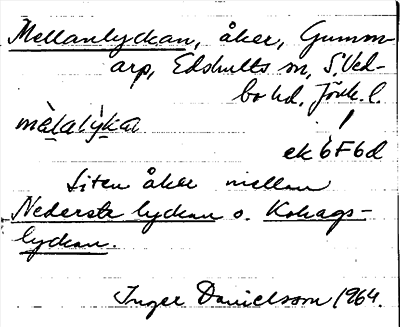 Mellanlyckan, åker, Gumm-
arp, Edshults sn, S. Ved-
bo hd, Jönk. l.
ek 6F6d
Liten åker mellan
Nederste lyckan o. Kohags-
lyckan.
Inger Danielsson 1964.